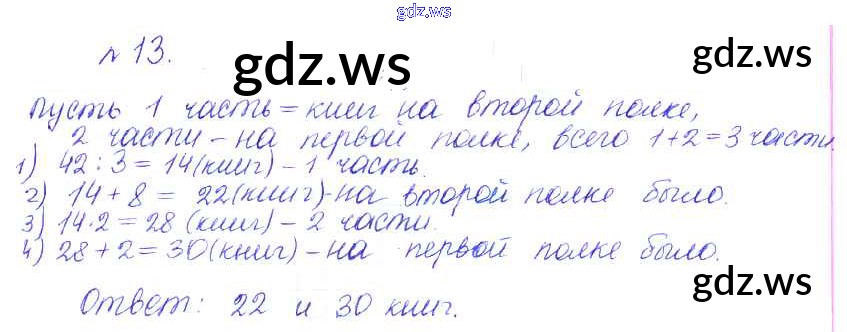 gdz.ws
№ 13.
gdz.ws
gdz.ws
Пусть 1 часть = книг на второй полке,
2 части - на первой полке, всего 1+2=3 части.
1) 42 : 3 = 14 (книг) - 1 часть.
2) 14 + 8 = 22 (книг) - на второй полке было.
3) 14 · 2 = 28 (книг) - 2 части.
4) 28 + 2 = 30 (книг) - на первой полке было.
gdz.ws
Ответ: 22 и 30 книг.